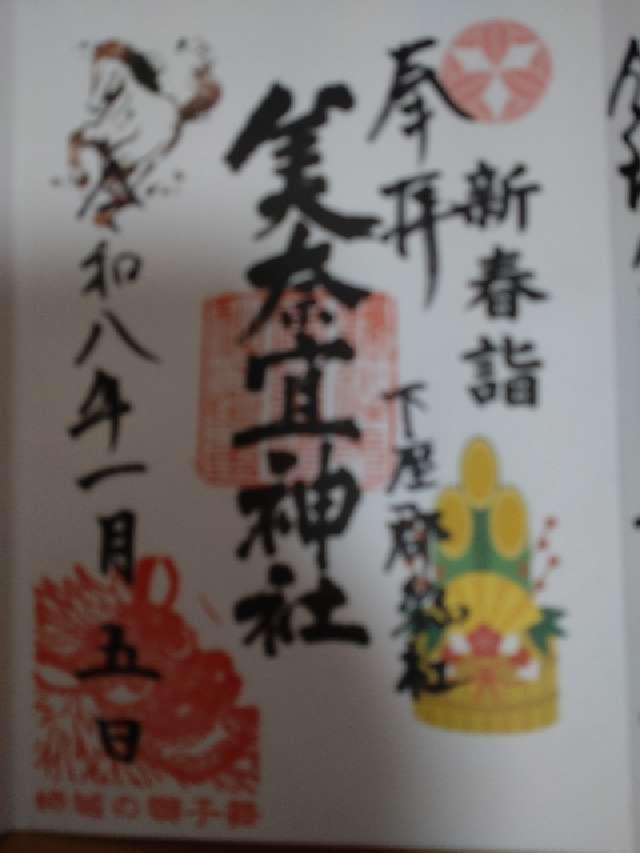 新春詣
奉拝
下座郡惣社
美奈宜神社
令和八年一月五日
の獅子舞